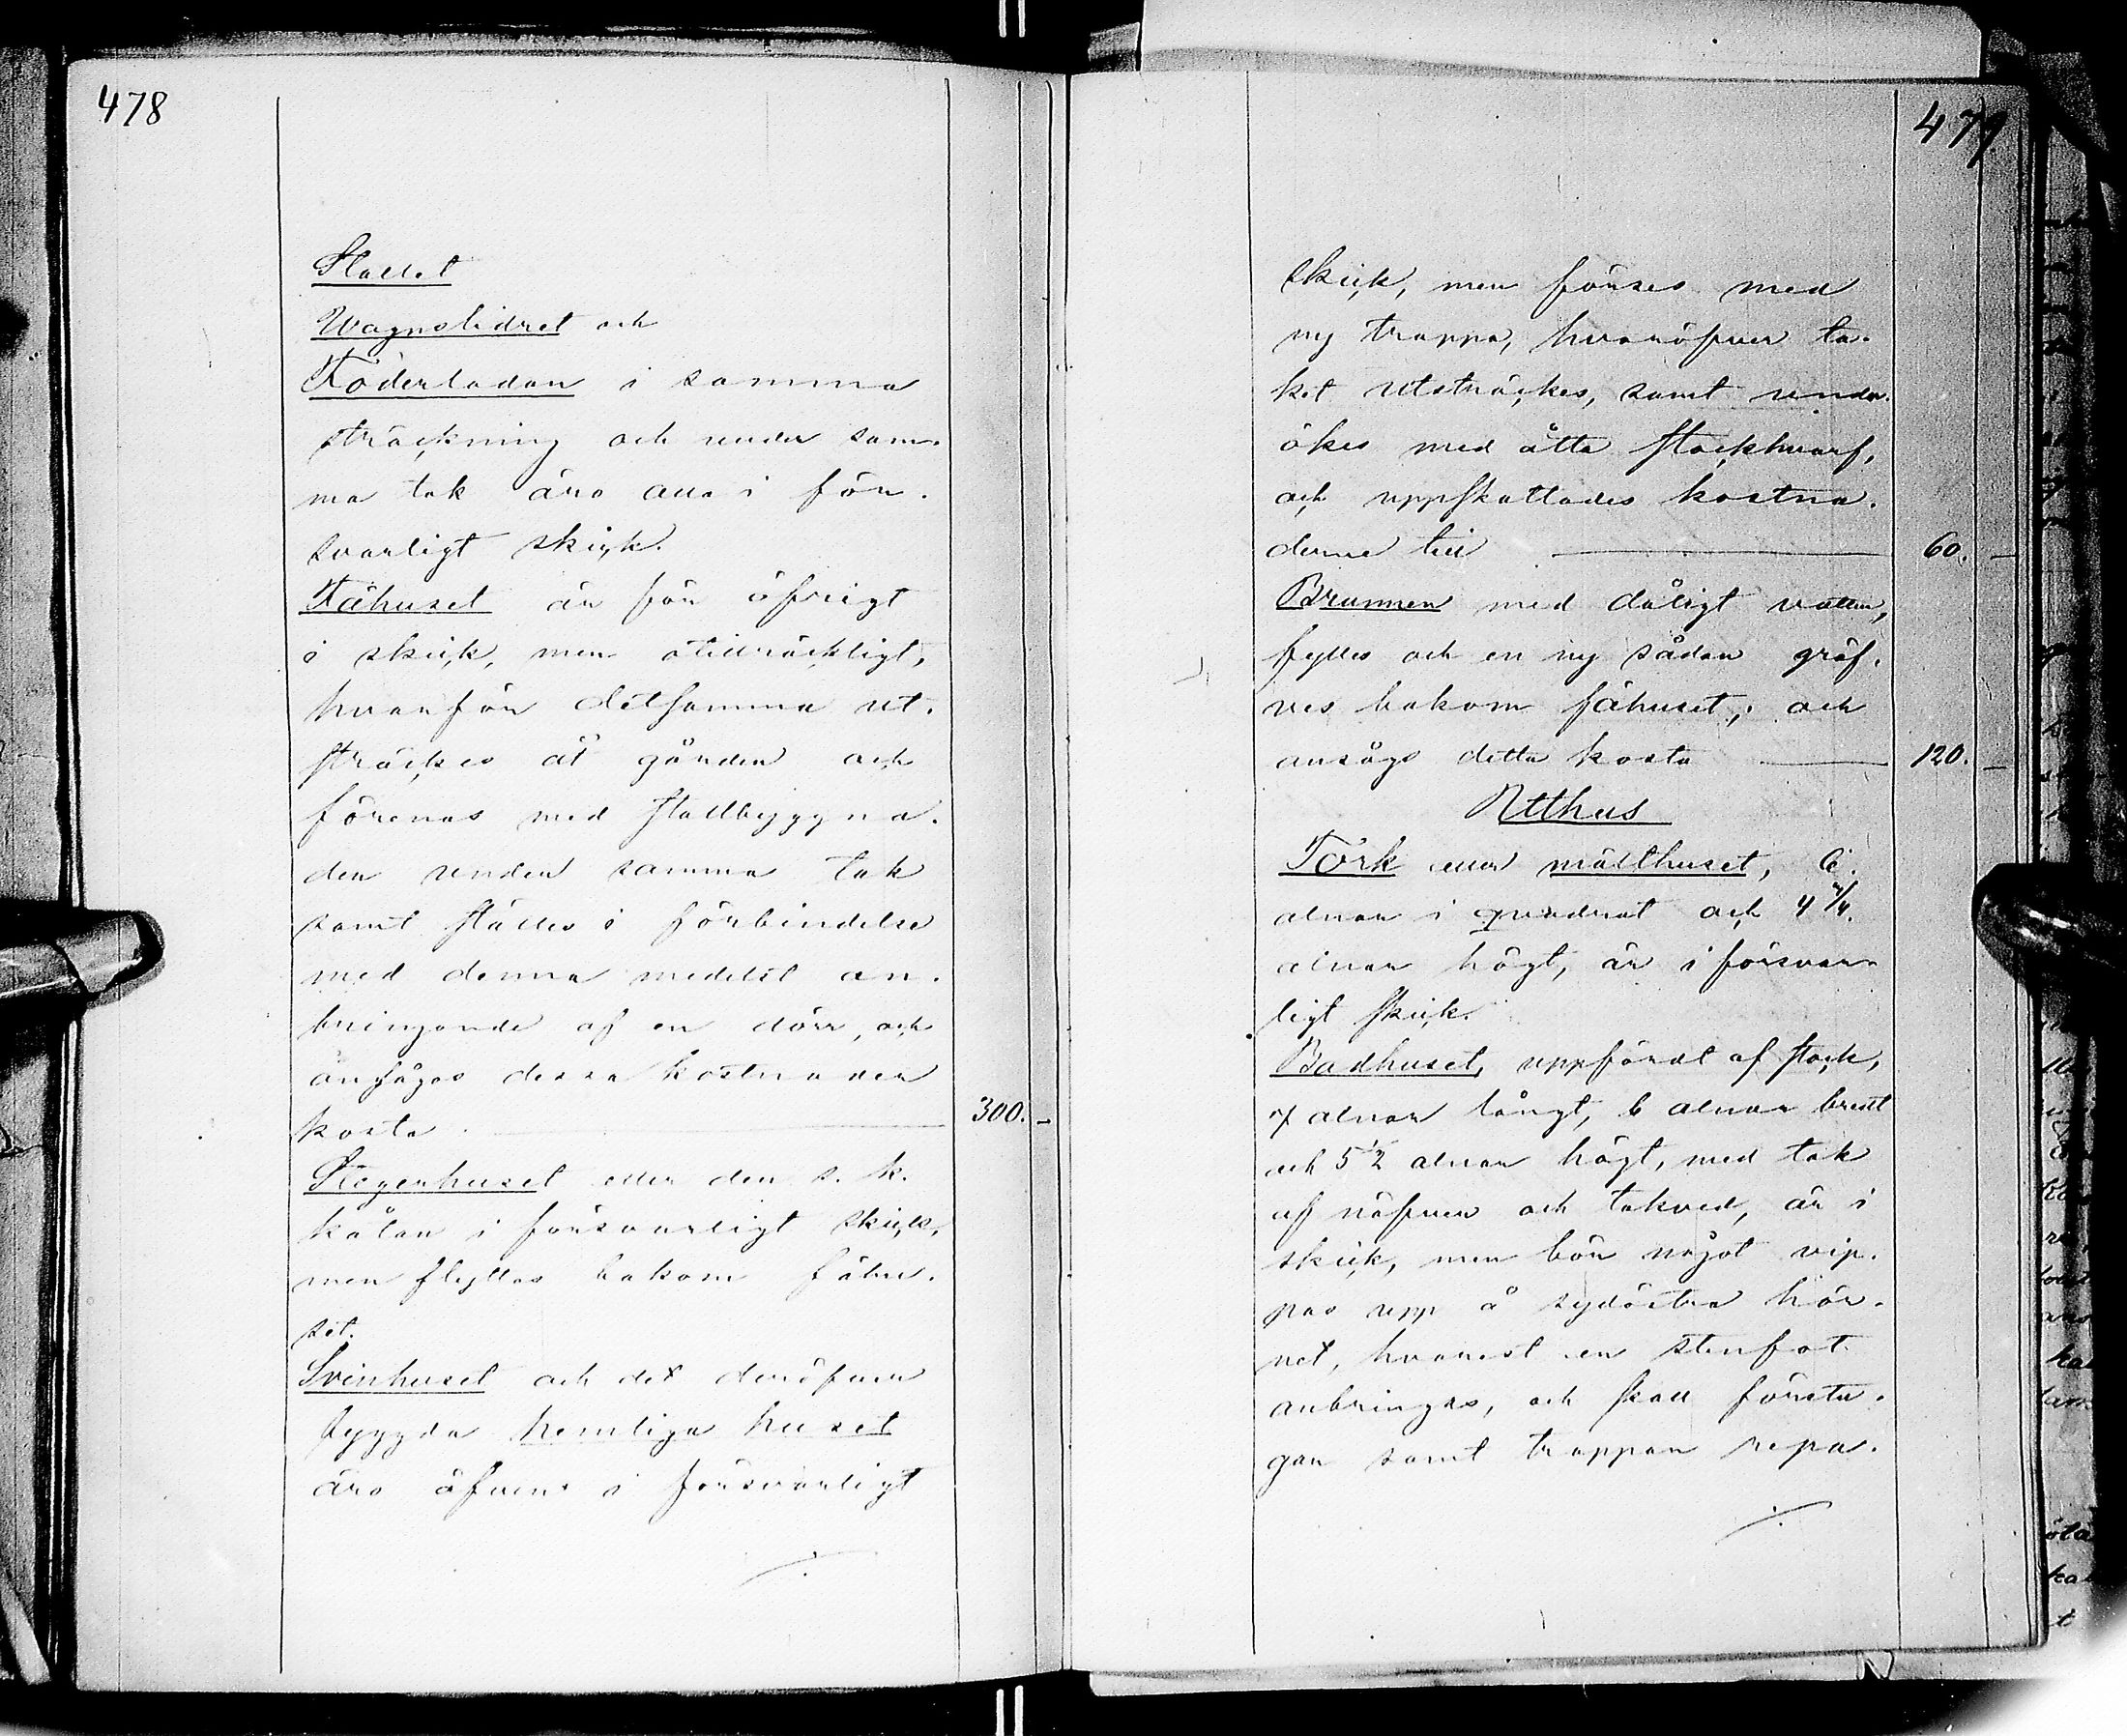 478
Stallet
Wagnslidret och
Föderladan i samma
sträckning och under sam-
ma tak äro alla i för-
svarligt skick.
Fähuset är för öfrigt
i skick, men otillräckligt,
hvarför detsamma ut-
sträckes åt gården och
förenas med stallbyggna-
den under samma tak
samt ställes i förbindelse
med denna medelst an-
bringande af en dörr, och
ansågos dessa kostnader
kosta 300. -
Stegerhuset eller den s. k.
kåtan i försvarligt skick,
men flyttas bakom fähu-
set.
Svinhuset och det deröfver
byggda hemliga huset
äro äfven i försvarligt
./.
479
skick, men förses med
ny trappa, hvaröfver ta-
ket utsträckes, samt under-
ökes med åtta stockhvarf,
och uppskattades kostna-
derne till 60. -
Brunnen med dåligt vatten,
fylles och en ny sådan gräf-
ves bakom fähuset; och
ansågs detta kosta 120. -
Uthus
Tork eller mälthuset, 6
alnar i quadrat och 4 1/4
alnar högt, är i försvar-
ligt skick.
Badhuset, uppfördt af stock,
7 alnar långt, 6 alnar bredt
och 5 1/2 alnar högt, med tak
af näfver och takved, är i
skick, men bör något vip-
pas upp å sydöstra hör-
net, hvarest en stenfot
anbringas, och skall förstu-
gan samt trappan repa-
./.